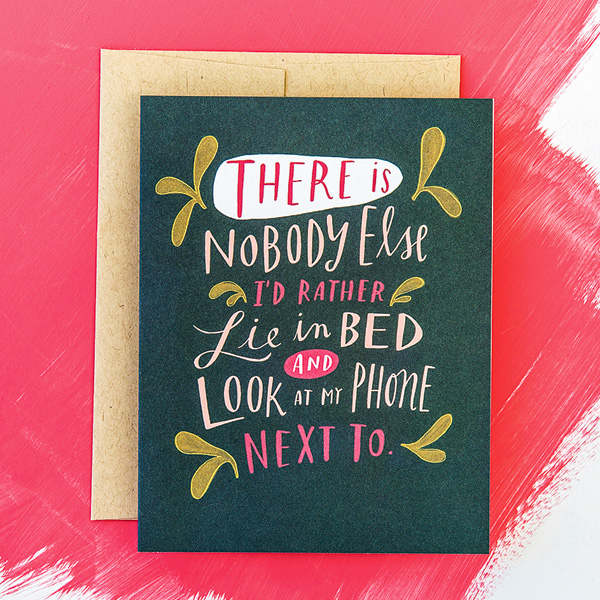 THERE is
NOBODY Else
I'D RATHER
Lie in BED
AND
LOOK AT MY PHONE
NEXT TO.